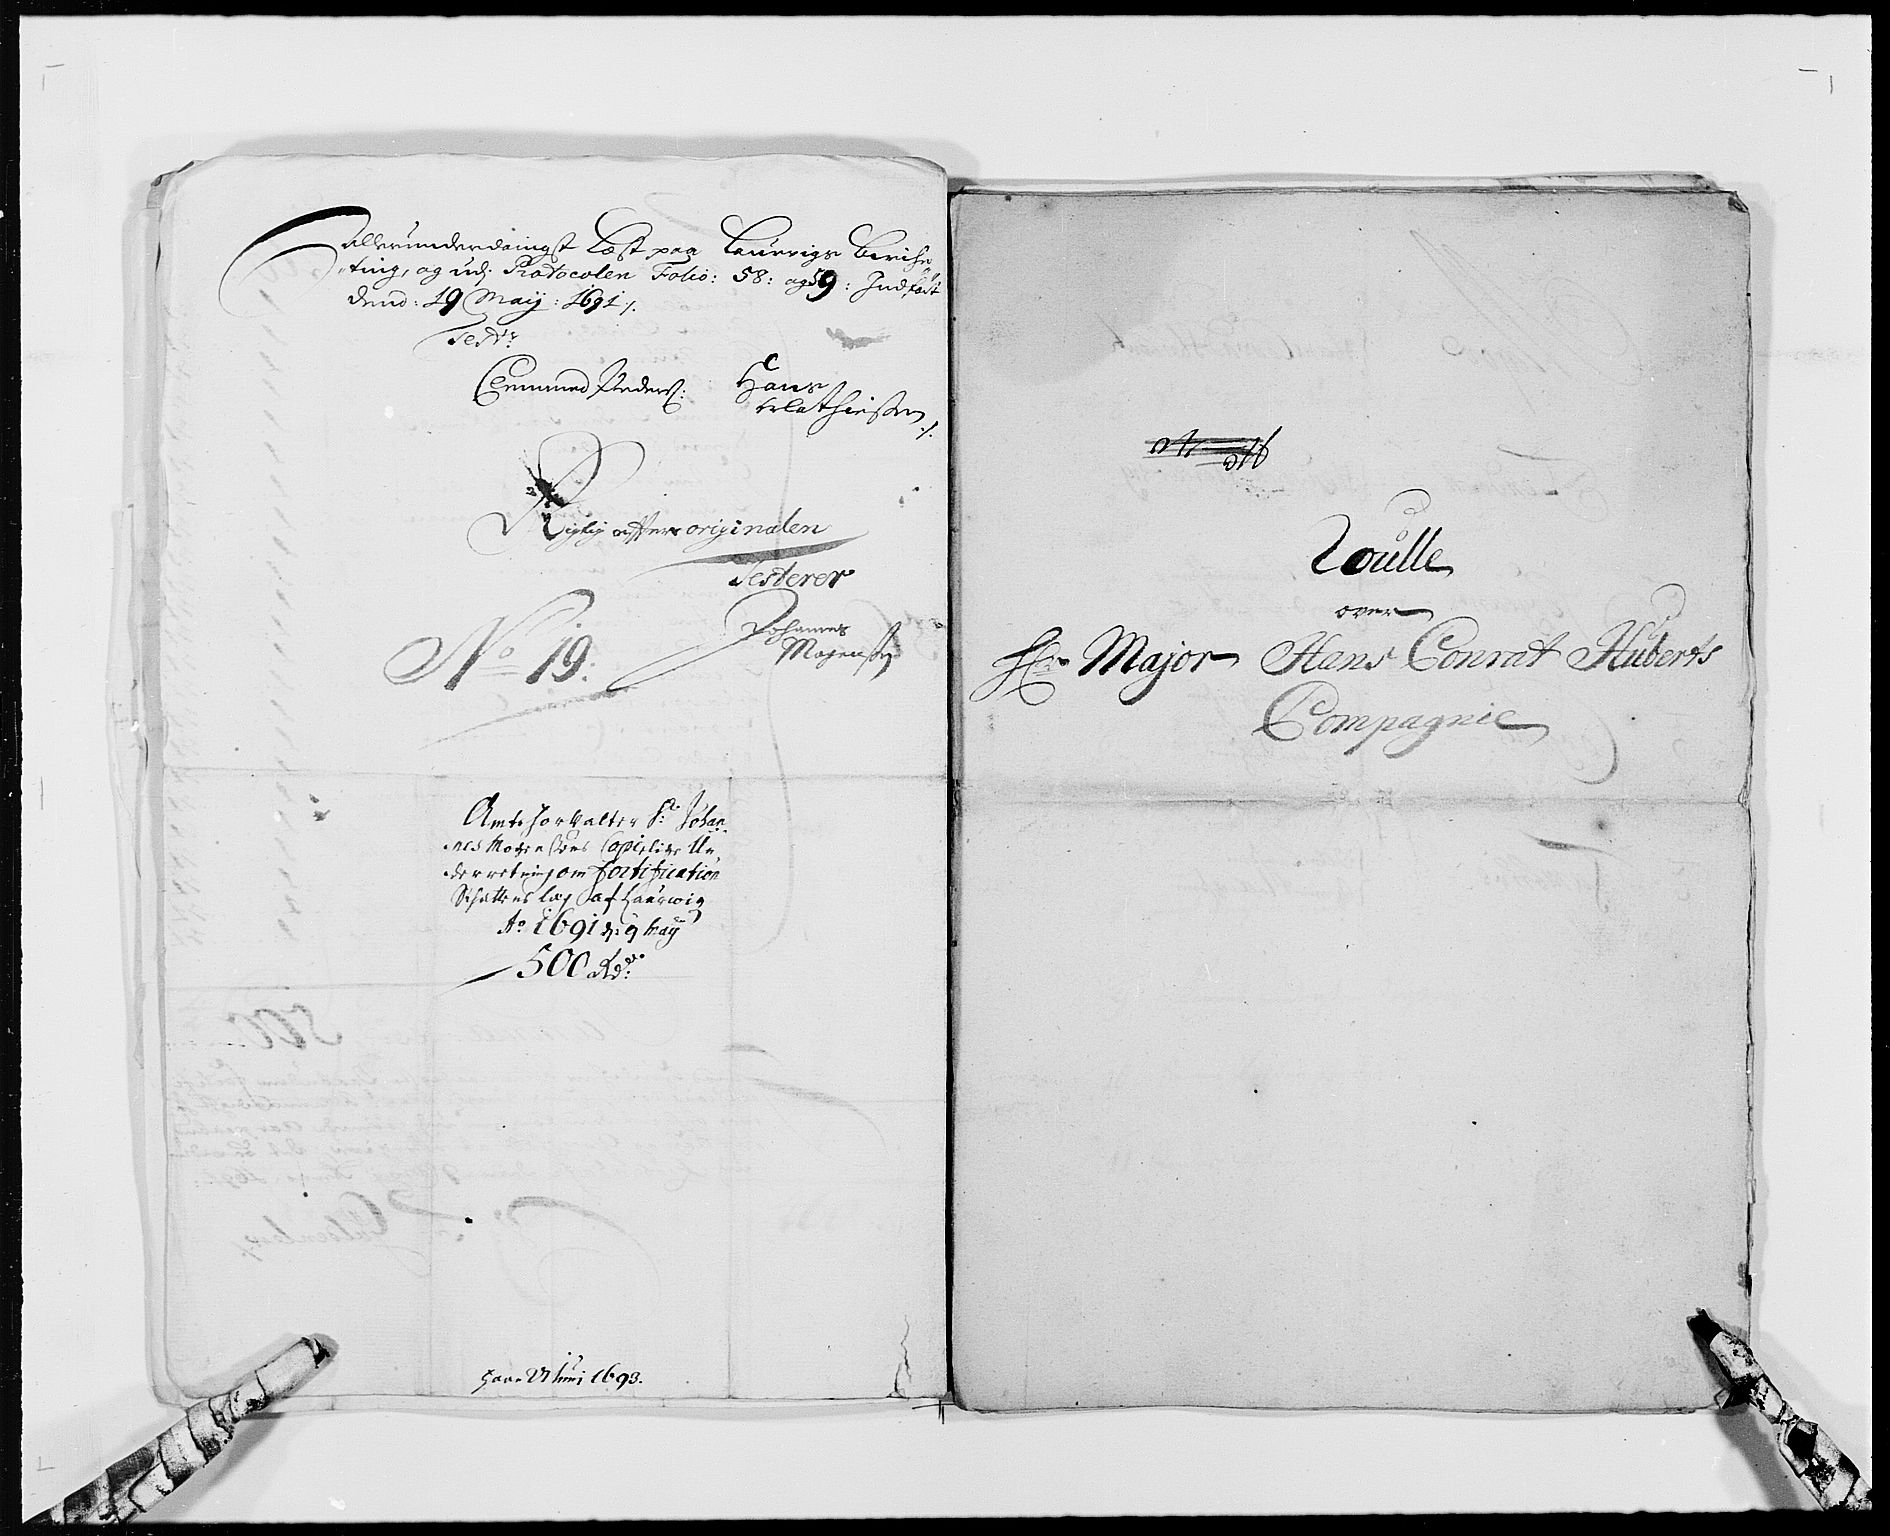 Allerunderdanigst Læst paa Laurvigs Birche
ting, og udj Protocolen Folio: 58: og 59: Indført
dend: 19 Maij: 1691 ⁒
Test:
Hans
Mathiessen ⁒
Rigtig efter originalen
Testerer
Johannes
Mogensen
No 19:
Amtsforvalter Sr Johan
nes Mogensens Copielige Un
derretning om fortification
Schattens læg af Laurwig
Ao 1691 d: 9 Maij
500 Rdr:
27 Juni 1693.
Roulle
over
Hr Major Hans Conrat Huberts
Compagnie